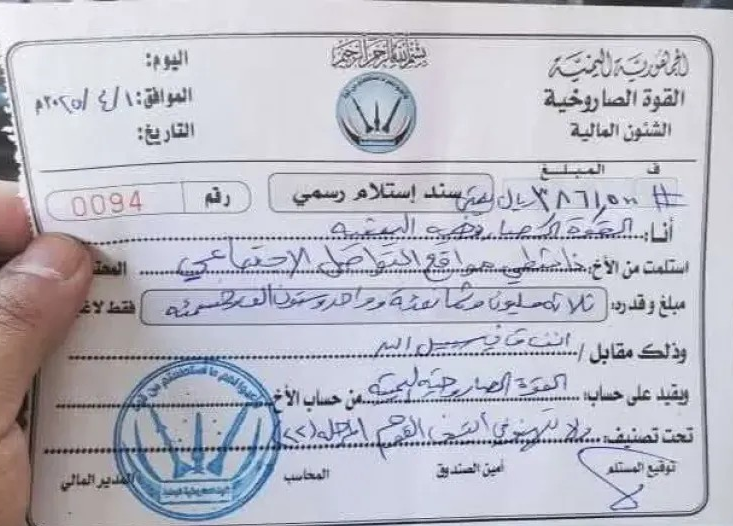 بسم الله الرحمن الرحيم
الجمهورية اليمنية
القوة الصاروخية
الشئون المالية
اليوم:
الموافق: ١ / ٤ / ٢٠٢٥م
التاريخ:
المبلغ
ف
# ٣٨٦١٥٠٠ ريال يمني
سند إستلام رسمي
رقم
0094
أنا: القوة الصاروخية اليمنية
استلمت من الأخ: ناشطي مواقع التواصل الاجتماعي المحت
مبلغ وقدره: ثلاثه مليون وثمانمئة وواحد وستون الف وخمسمئه فقط لاغي
وذلك مقابل / انفاق في سبيل الله
ويقيد على حساب: القوة الصاروخية اليمنية من حساب الأخ
تحت تصنيف: ولا تهنو في ابتغاء القوم المرحلة (٢٢)
توقيع المستلم
أمين الصندوق
المحاسب
المدير المالي
وأعدوا لهم ما استطعتم من قوة